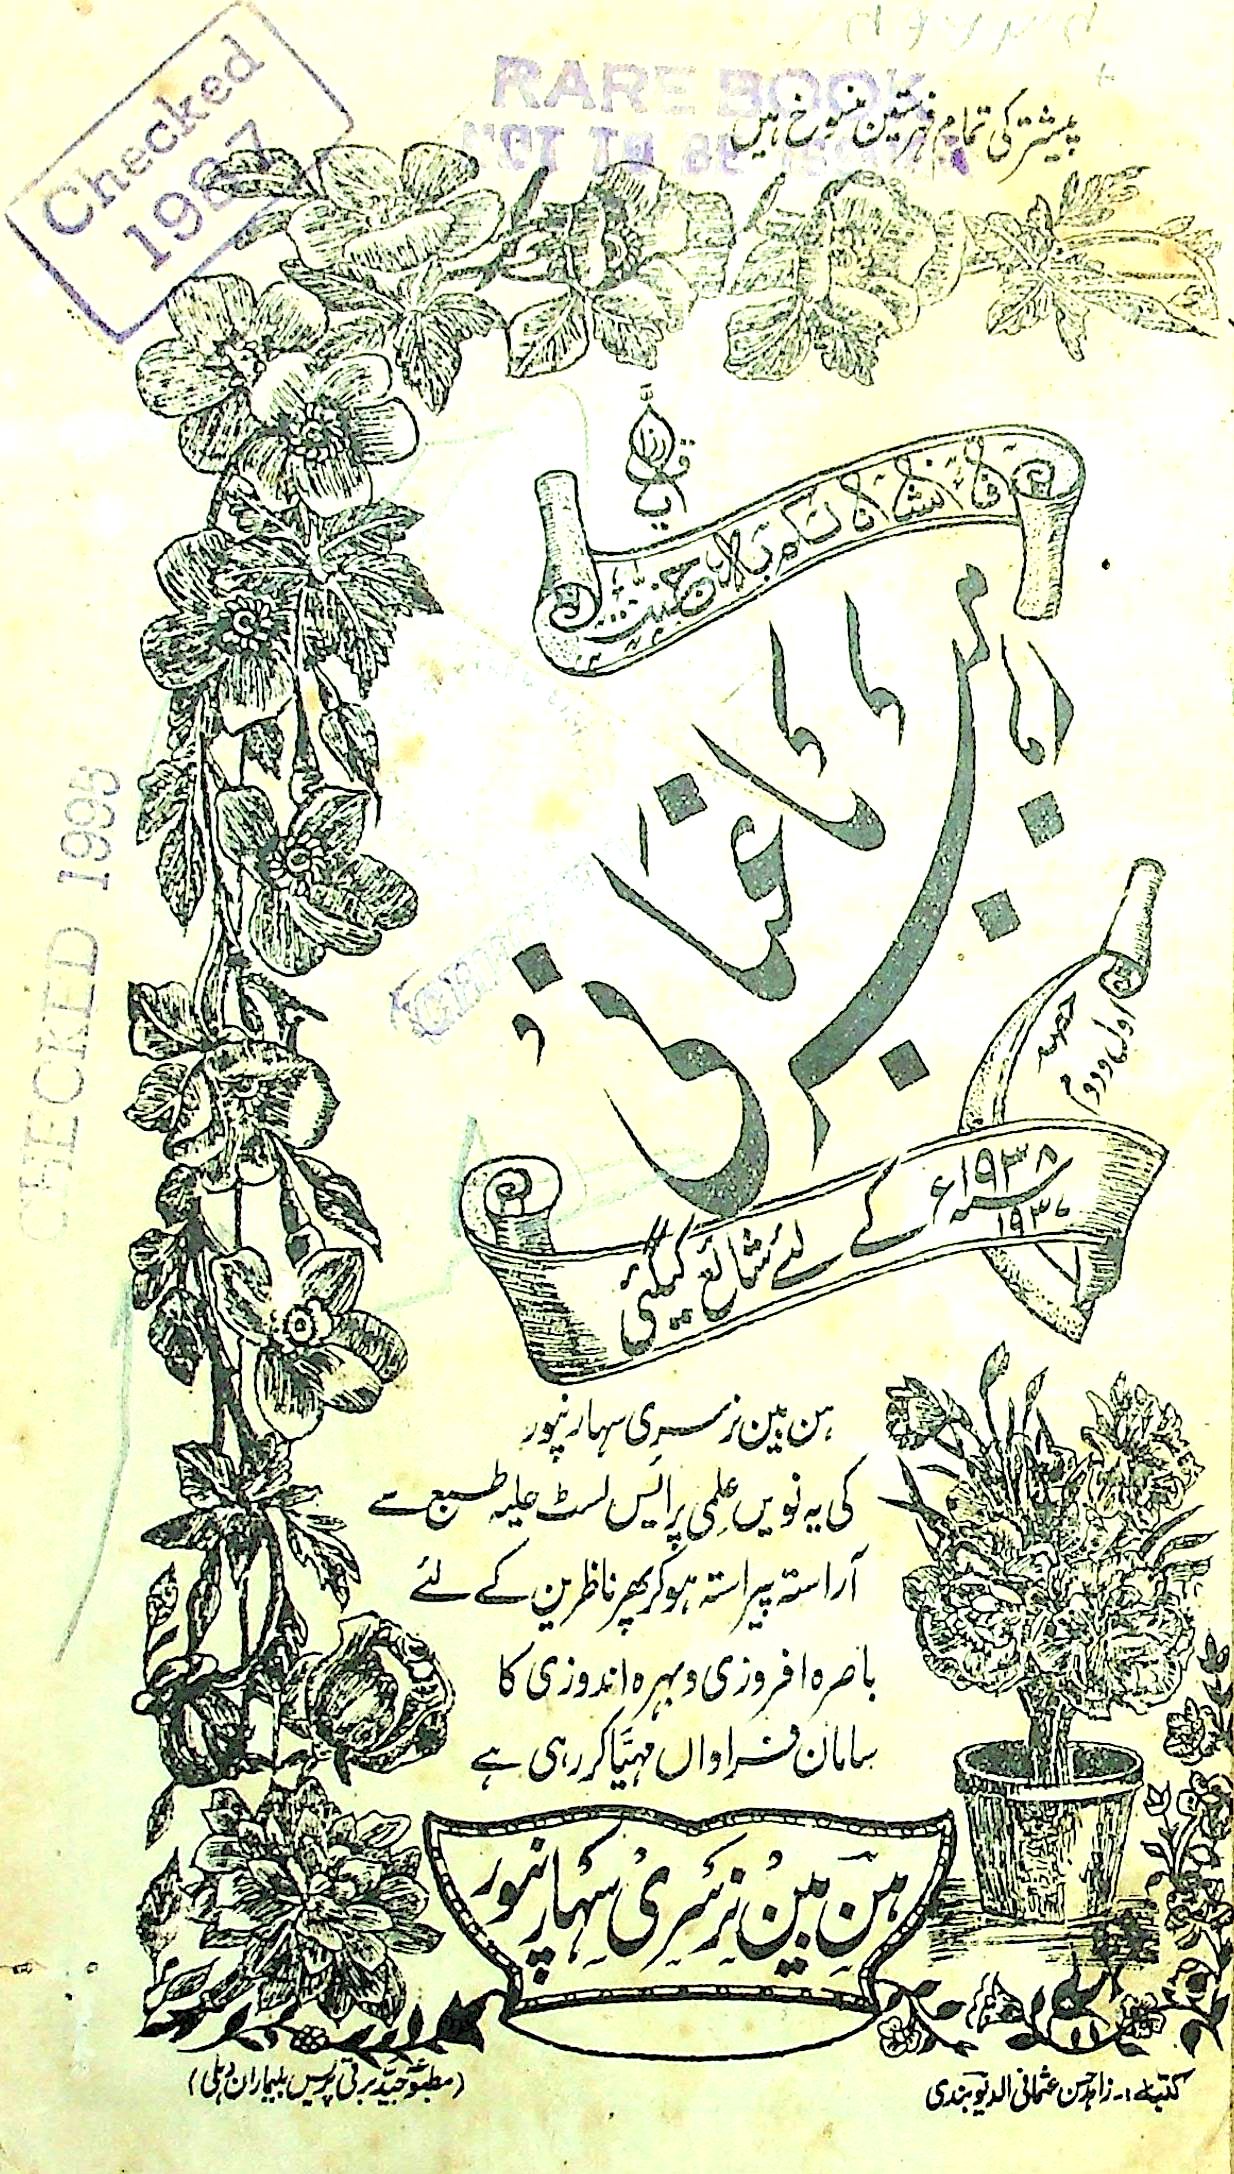 Checked
1987
RARE BOOK
NOT TO BE ISSUED
پیشتر کی تمام فہرستیں منسوخ ہیں
یا فتاح
فانشاءنا لکم بہ جنت
رہبر باغبانی
حصہ
اول و دوم
CHECKED 1995
۱۹۳۷
۱۹۳۸ء کے لئے شائع کیگئی
ہن بین نرسری سہارنپور
کی یہ نویں علمی پرائیس لسٹ حلیہ طبع سے
آراستہ پیراستہ ہوکر پھر ناظرین کے لئے
باصرہ افروزی و بہرہ اندوزی کا
سامان فراواں مہیّا کر رہی ہے
ہن بین نرسری سہارنپور
کتبہٗ:۔ زاہد حسن عثمانی الدیوبندی
(مطبوعہ جیّد برقی پریس بلیماران دہلی)